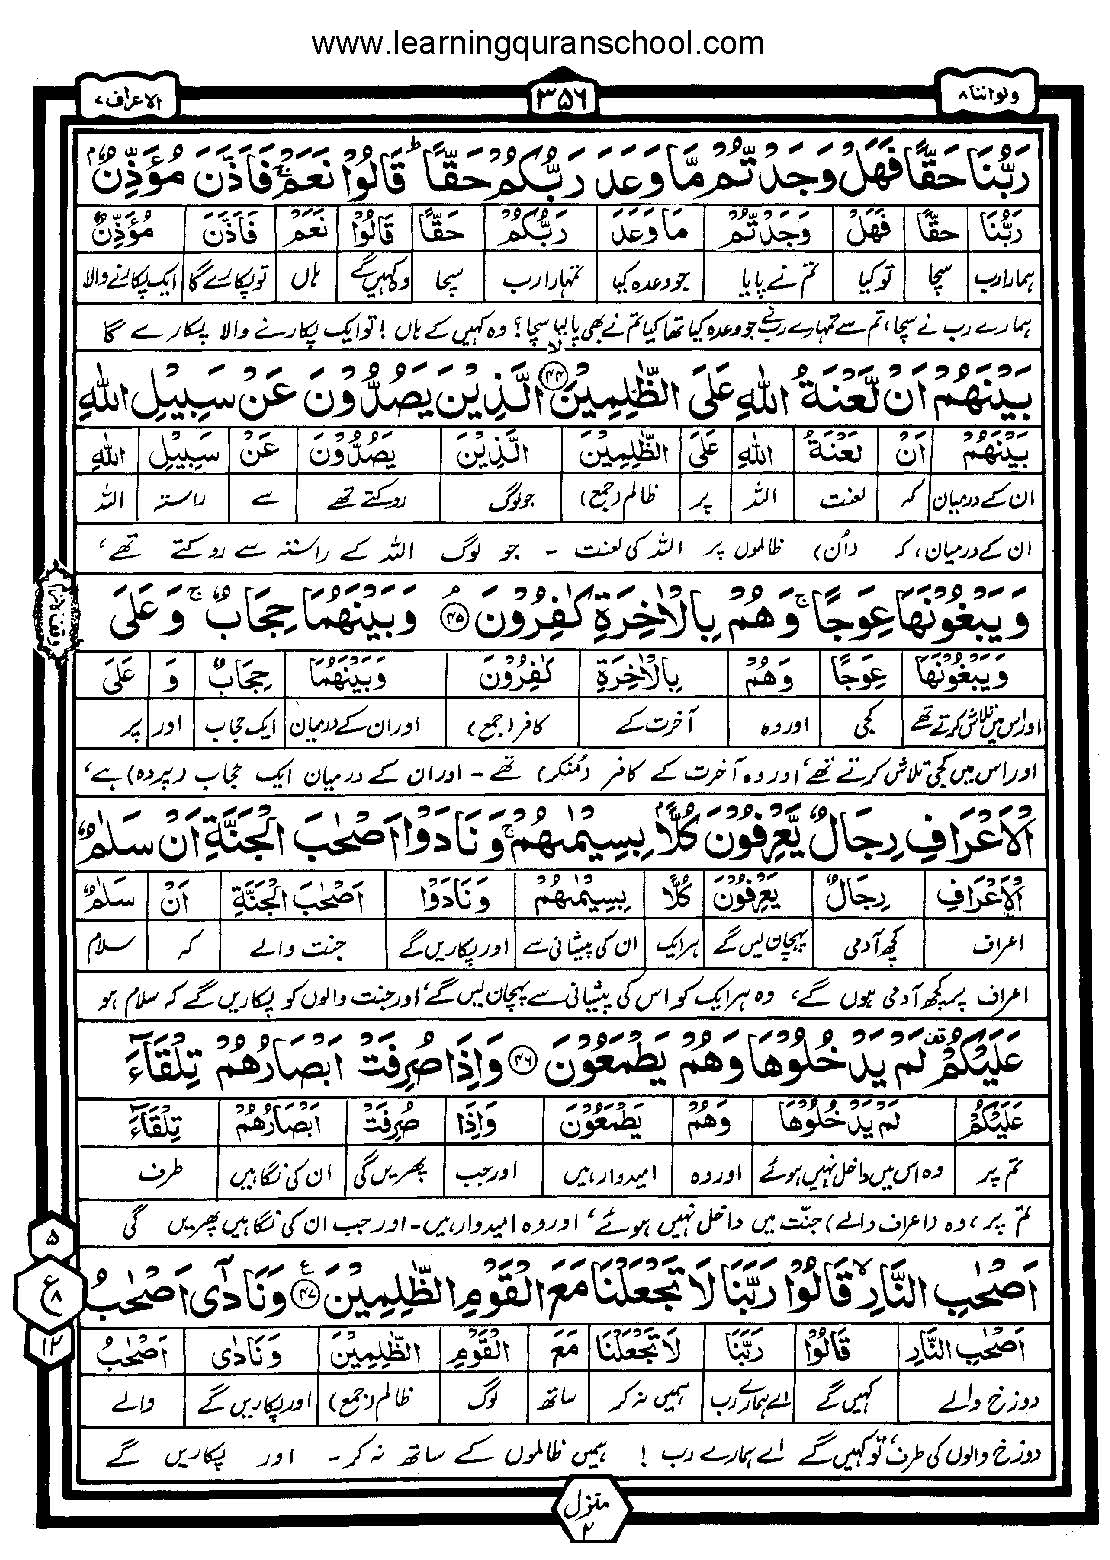 www.learningquranschool.com
ولواننا ۸
۳۵۶
الاعراف ۷
رَبُّنَا حَقًّا فَهَلْ وَجَدْتُّمْ مَّا وَعَدَ رَبُّكُمْ حَقًّا ؕ قَالُوْا نَعَمْ ۚ فَاَذَّنَ مُؤَذِّنٌۢ
رَبُّنَا حَقًّا فَهَلْ وَجَدْتُّمْ مَا وَعَدَ رَبُّكُمْ حَقًّا قَالُوْا نَعَمْ فَاَذَّنَ مُؤَذِّنٌ
ہمارا رب سچا تو کیا تم نے پایا جو وعدہ کیا تمہارا رب سچا وہ کہیں گے ہاں تو پکارے گا ایک پکارنے والا
ہمارے رب نے سچا، تم سے تمہارے رب نے جو وعدہ کیا تھا کیا تم نے بھی پایا سچا؟ وہ کہیں کے ہاں! تو ایک پکارنے والا پکارے گا
بَيْنَهُمْ اَنْ لَّعْنَةُ اللّٰهِ عَلَى الظّٰلِمِيْنَ ﴿۴۴﴾ۙ الَّذِيْنَ يَصُدُّوْنَ عَنْ سَبِيْلِ اللّٰهِ
بَيْنَهُمْ اَنْ لَعْنَةُ اللّٰهِ عَلَى الظّٰلِمِيْنَ الَّذِيْنَ يَصُدُّوْنَ عَنْ سَبِيْلِ اللّٰهِ
ان کے درمیان کہ لعنت اللہ پر ظالم (جمع) جو لوگ روکتے تھے سے راستہ اللہ
ان کے درمیان، کہ (اُن) ظالموں پر اللہ کی لعنت - جو لوگ اللہ کے راستہ سے روکتے تھے،
وَيَبْغُوْنَهَا عِوَجًا ۚ وَهُمْ بِالْاٰخِرَةِ كٰفِرُوْنَ ﴿۴۵﴾ۘ وَبَيْنَهُمَا حِجَابٌ ۚ وَعَلَى
وَيَبْغُوْنَهَا عِوَجًا وَهُمْ بِالْاٰخِرَةِ كٰفِرُوْنَ وَبَيْنَهُمَا حِجَابٌ وَ عَلَى
اور اس میں تلاش کرتے تھے کجی اور وہ آخرت کے کافر (جمع) اور ان کے درمیان ایک حجاب اور پر
اور اس میں کجی تلاش کرتے تھے، اور وہ آخرت کے کافر (مُنکر) تھے - اور ان کے درمیان ایک حجاب (پردہ) ہے،
الْاَعْرَافِ رِجَالٌ يَّعْرِفُوْنَ كُلًّاۢ بِسِيْمٰىهُمْ ۚ وَنَادَوْا اَصْحٰبَ الْجَنَّةِ اَنْ سَلٰمٌ
الْاَعْرَافِ رِجَالٌ يَعْرِفُوْنَ كُلًّا بِسِيْمٰىهُمْ وَنَادَوْا اَصْحٰبَ الْجَنَّةِ اَنْ سَلٰمٌ
اعراف کچھ آدمی پہچان لیں گے ہر ایک ان کی پیشانی سے اور پکاریں گے جنت والے کہ سلام
اعراف پر کچھ آدمی ہوں گے، وہ ہر ایک کو اس کی پیشانی سے پہچان لیں گے، اور جنت والوں کو پکاریں گے کہ سلام ہو
عَلَيْكُمْ ۫ لَمْ يَدْخُلُوْهَا وَهُمْ يَطْمَعُوْنَ ﴿۴۶﴾ وَاِذَا صُرِفَتْ اَبْصَارُهُمْ تِلْقَآءَ
عَلَيْكُمْ لَمْ يَدْخُلُوْهَا وَهُمْ يَطْمَعُوْنَ وَاِذَا صُرِفَتْ اَبْصَارُهُمْ تِلْقَآءَ
تم پر وہ اس میں داخل نہیں ہوئے اور وہ امیدوار ہیں اور جب پھریں گی ان کی نگاہیں طرف
تم پر، وہ (اعراف والے) جنت میں داخل نہیں ہوئے، اور وہ امیدوار ہیں - اور جب ان کی نگاہیں پھریں گی
اَصْحٰبِ النَّارِ ۙ قَالُوْا رَبَّنَا لَا تَجْعَلْنَا مَعَ الْقَوْمِ الظّٰلِمِيْنَ ﴿۴۷﴾ وَنَادٰٓى اَصْحٰبُ
اَصْحٰبِ النَّارِ قَالُوْا رَبَّنَا لَا تَجْعَلْنَا مَعَ الْقَوْمِ الظّٰلِمِيْنَ وَنَادٰى اَصْحٰبُ
دوزخ والے کہیں گے اے ہمارے رب ہمیں نہ کر ساتھ لوگ ظالم (جمع) اور پکاریں گے والے
دوزخ والوں کی طرف، تو کہیں گے اے ہمارے رب! ہمیں ظالموں کے ساتھ نہ کر - اور پکاریں گے
۵
ع
۸
۱۲
منزل
۲